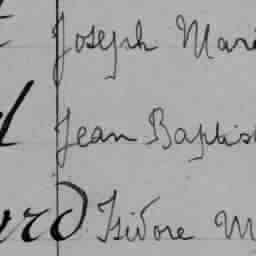 Joseph Mari
Jean Baptis
urd Isidore M